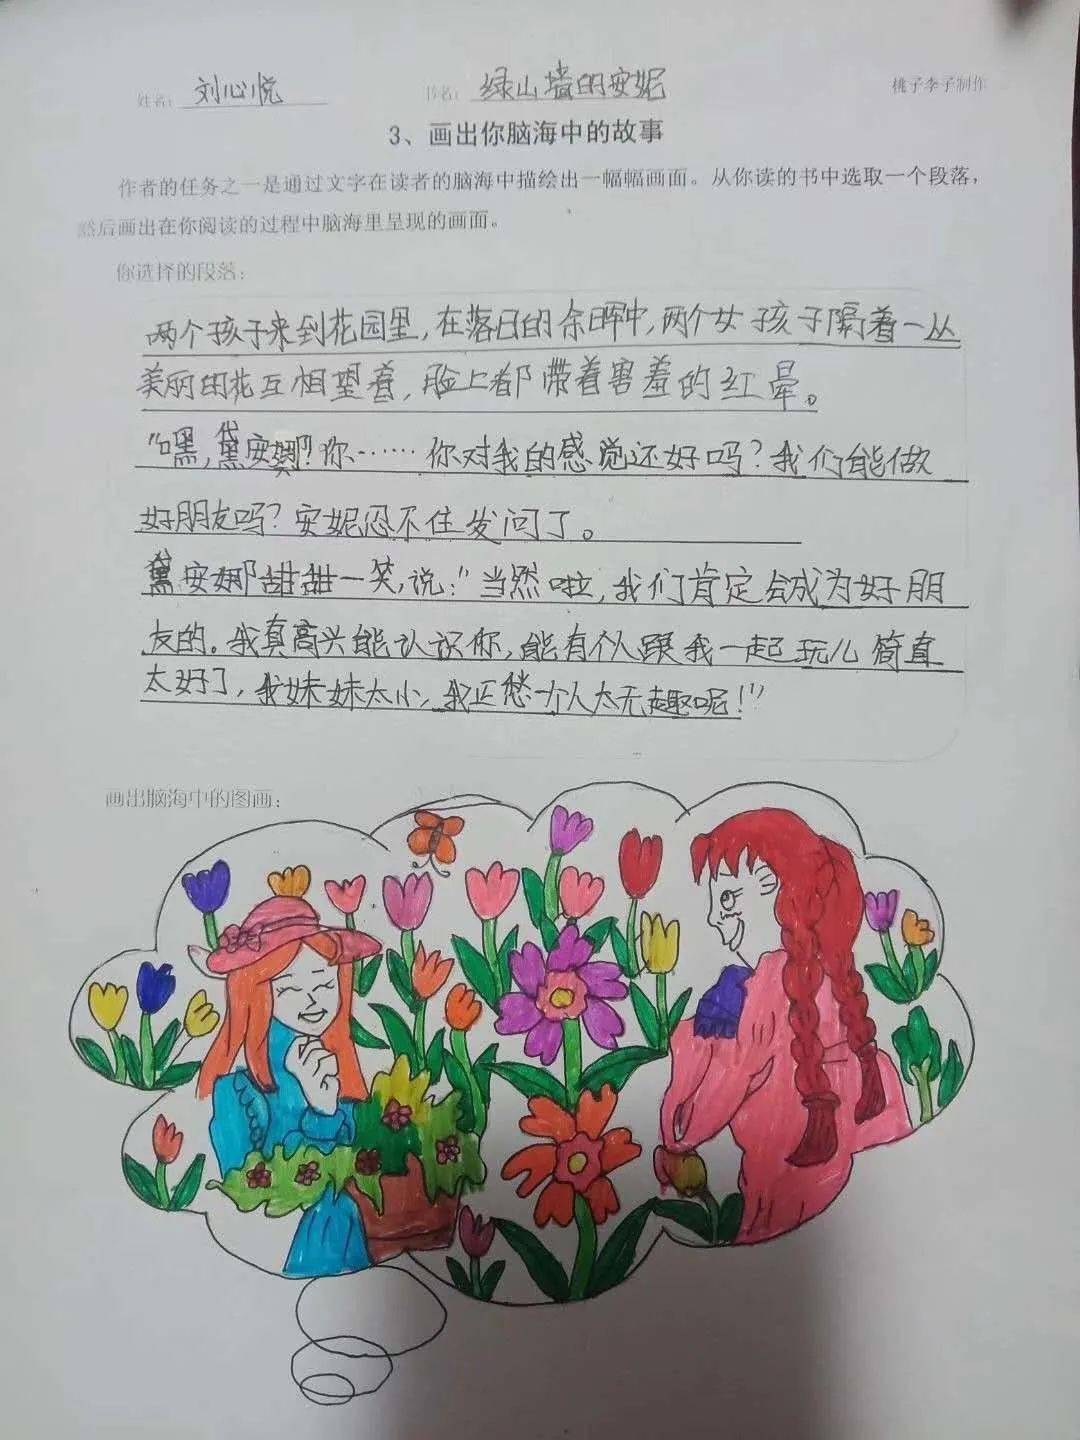 姓名： 刘心悦 书名： 绿山墙的安妮 桃子李子制作
3、画出你脑海中的故事
作者的任务之一是通过文字在读者的脑海中描绘出一幅幅画面。从你读的书中选取一个段落，
然后画出在你阅读的过程中脑海里呈现的画面。
你选择的段落：
两个孩子来到花园里，在落日的余晖中，两个女孩子隔着一丛
美丽的花互相望着，脸上都带着害羞的红晕。
“嘿，黛安娜？你……你对我的感觉还好吗？我们能做
好朋友吗？安妮忍不住发问了。
黛安娜甜甜一笑，说：“当然啦，我们肯定会成为好朋
友的。我真高兴能认识你，能有个人跟我一起玩儿简直
太好了，我妹妹太小，我正愁一个人太无趣呢！”
画出脑海中的图画：